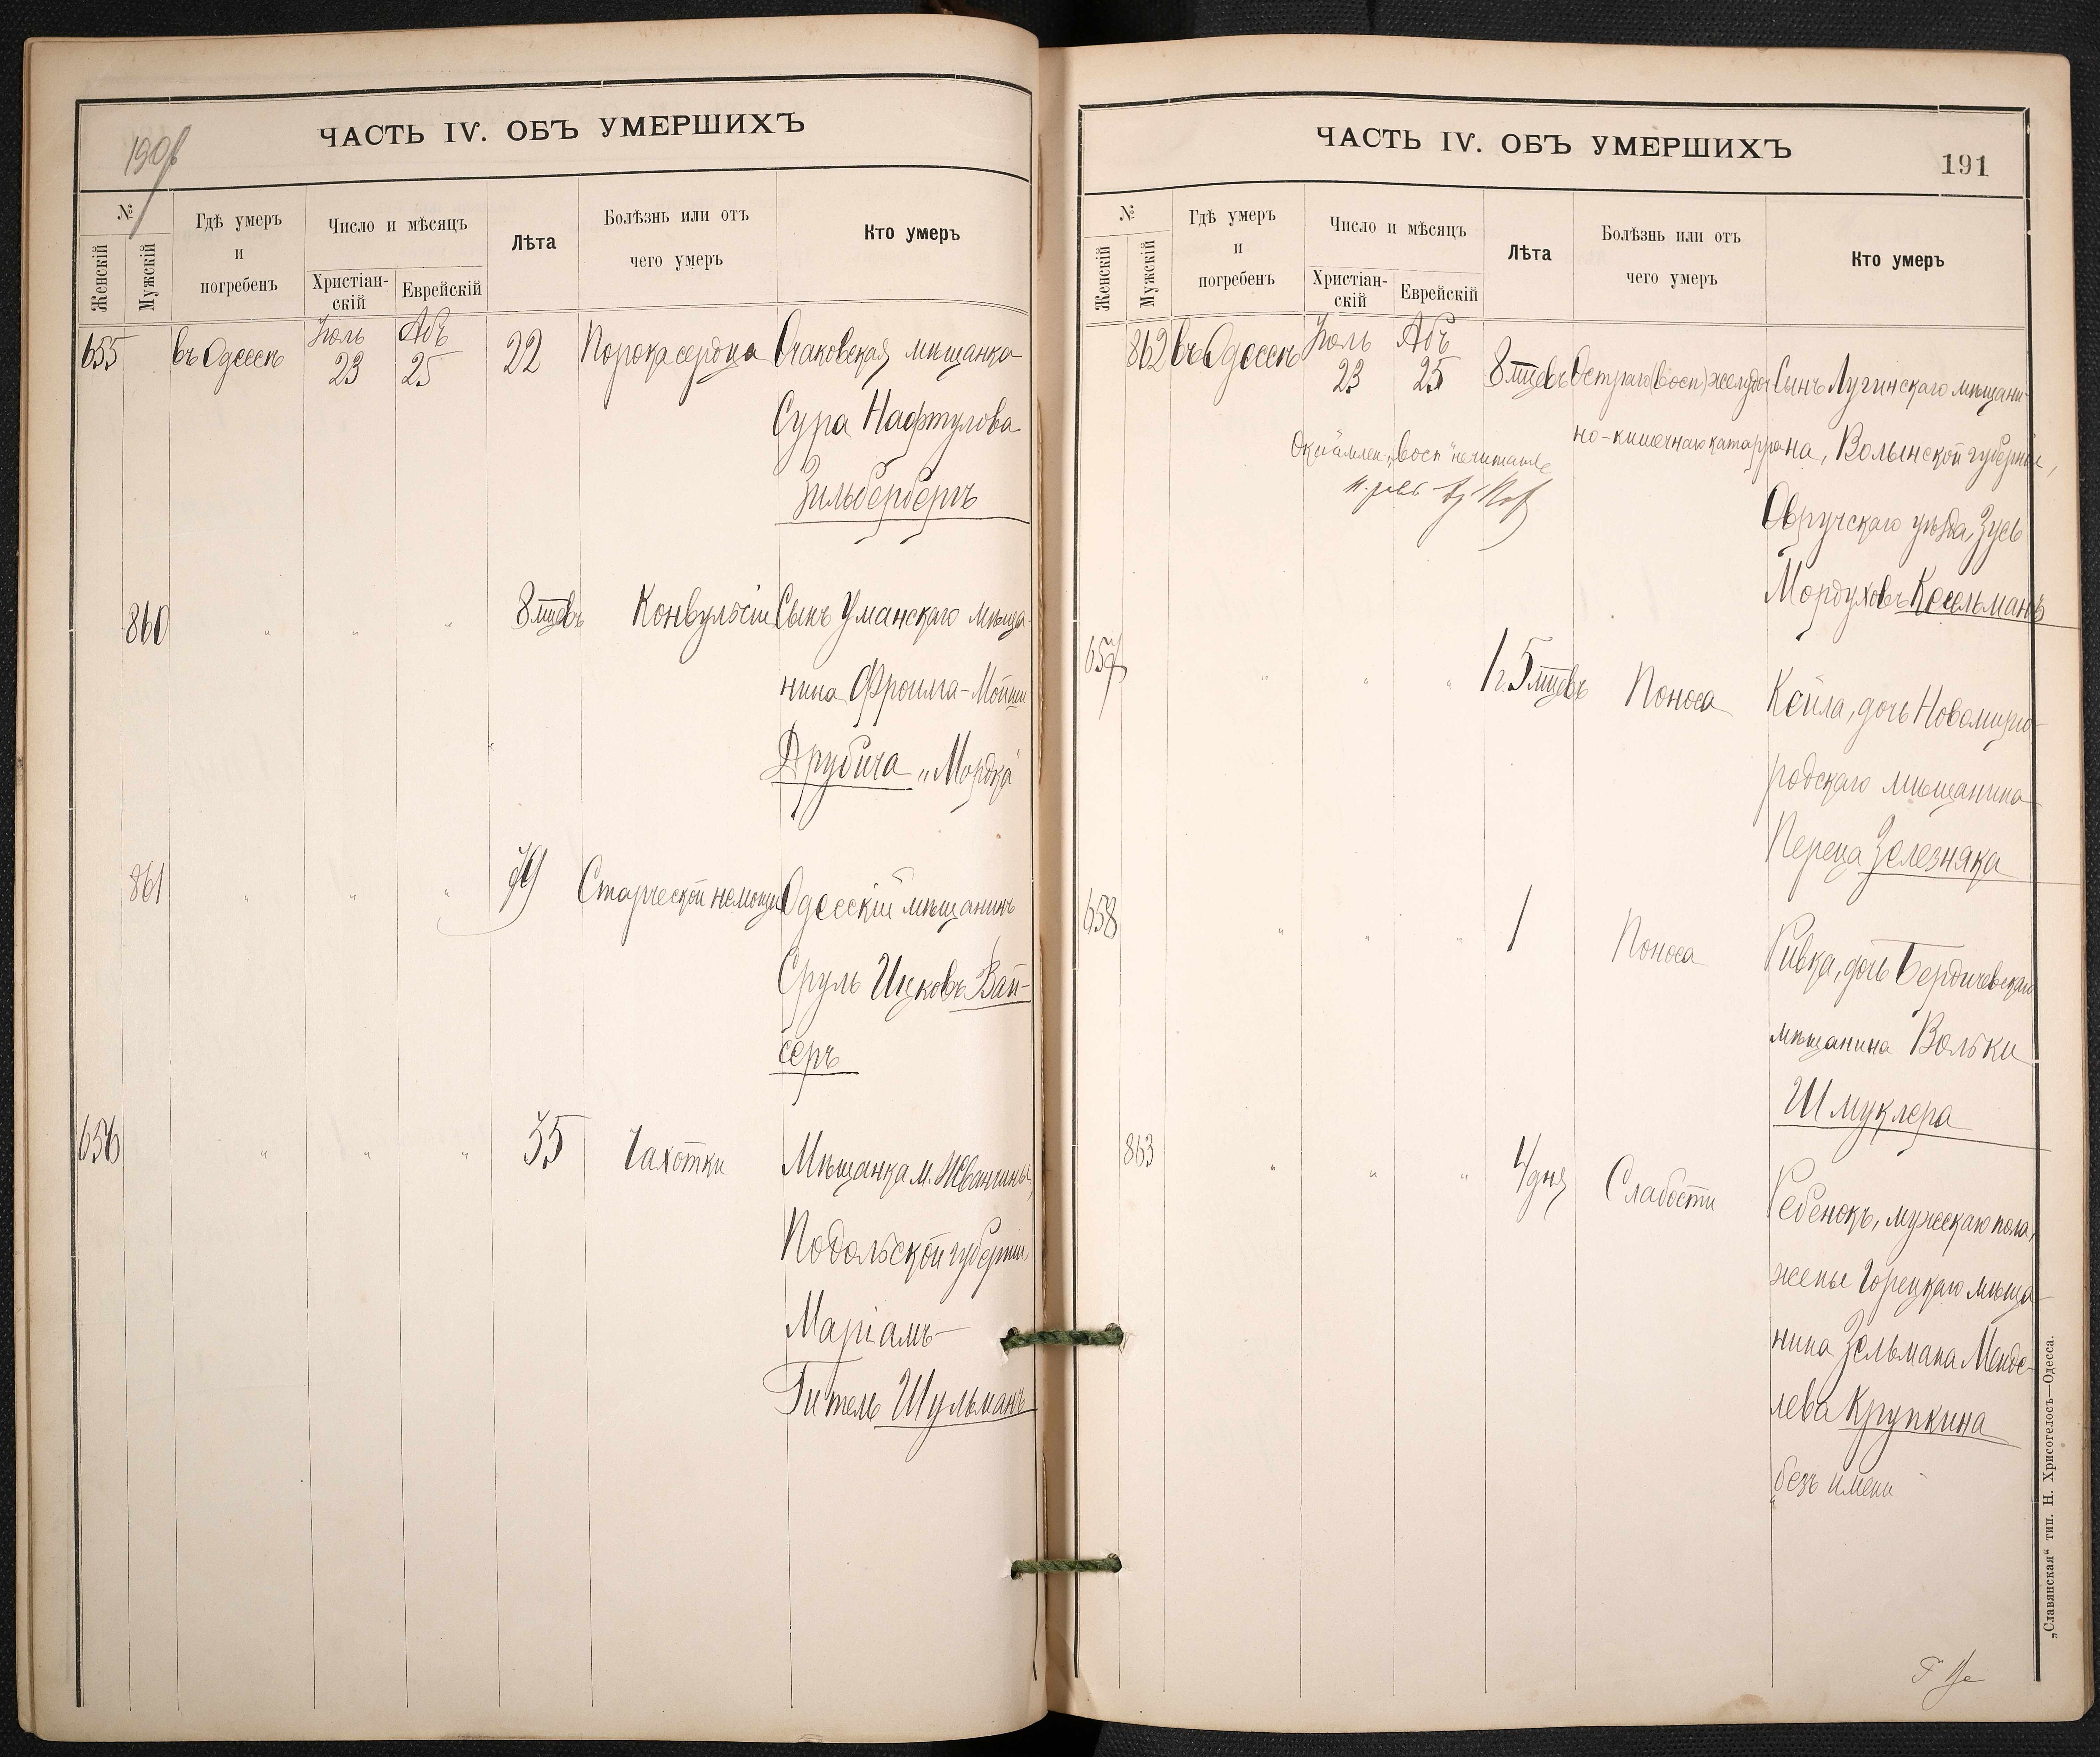 ЧАСТЬ IV. ОБЪ УМЕРШИХЪ
№
Женскій
Мужскій
Гдѣ умеръ
и
погребенъ
Число и мѣсяцъ
Христіан-
скій
Еврейскій
Лѣта
Болѣзнь или отъ
чего умеръ
Кто умеръ
655 въ Одессѣ Іюль 23 Абъ 25 22 Порока сердца Очаковская мѣщанка
Сура Нафтулова
Зильбербергъ
860 " " " 8 мцевъ Конвульсіи Сынъ Уманскаго мѣща-
нина Фроима-Мойши
Друбича „Мордка"
861 " " " 79 Старческой немощи Одесскій мѣщанинъ
Сруль Ицковъ Вай-
серъ
656 " " " 55 Чахотки Мѣщанка м. Жванчика,
Подольской губерніи,
Маріамъ-
Гитель Шульманъ
ЧАСТЬ IV. ОБЪ УМЕРШИХЪ
191
№
Женскій
Мужскій
Гдѣ умеръ
и
погребенъ
Число и мѣсяцъ
Христіан-
скій
Еврейскій
Лѣта
Болѣзнь или отъ
чего умеръ
Кто умеръ
862 въ Одессѣ Іюль 23 Абъ 25 8 мцевъ Остраго (восп) желудоч Сынъ Лугинскаго мѣщани-
но-кишечнаго катарра на, Волынской губерніи,
„восп" не читать
Овручскаго уѣзда, Зусь
Мордуховъ Косельманъ
657 " " " 1 г. 5 мцевъ Поноса Кейла, дочь Новомирго-
родскаго мѣщанина
Переца Зелезняка
658 " " " 1 Поноса Ривка, дочь Бердичевскаго
мѣщанина Вольки
Шмуклера
863 " " " 4 дня Слабости Ребенокъ, мужескаго пола,
жены Горецкаго мѣща-
нина Зельмана Менде-
лева Крупкина
„безъ имени"
„Славянская" тип. Н. Хрисогелосъ—Одесса.